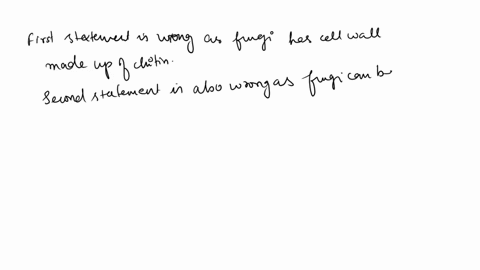 First statement is wrong as fungi has cell wall
made up of chitin.
Second statement is also wrong as fungi can be